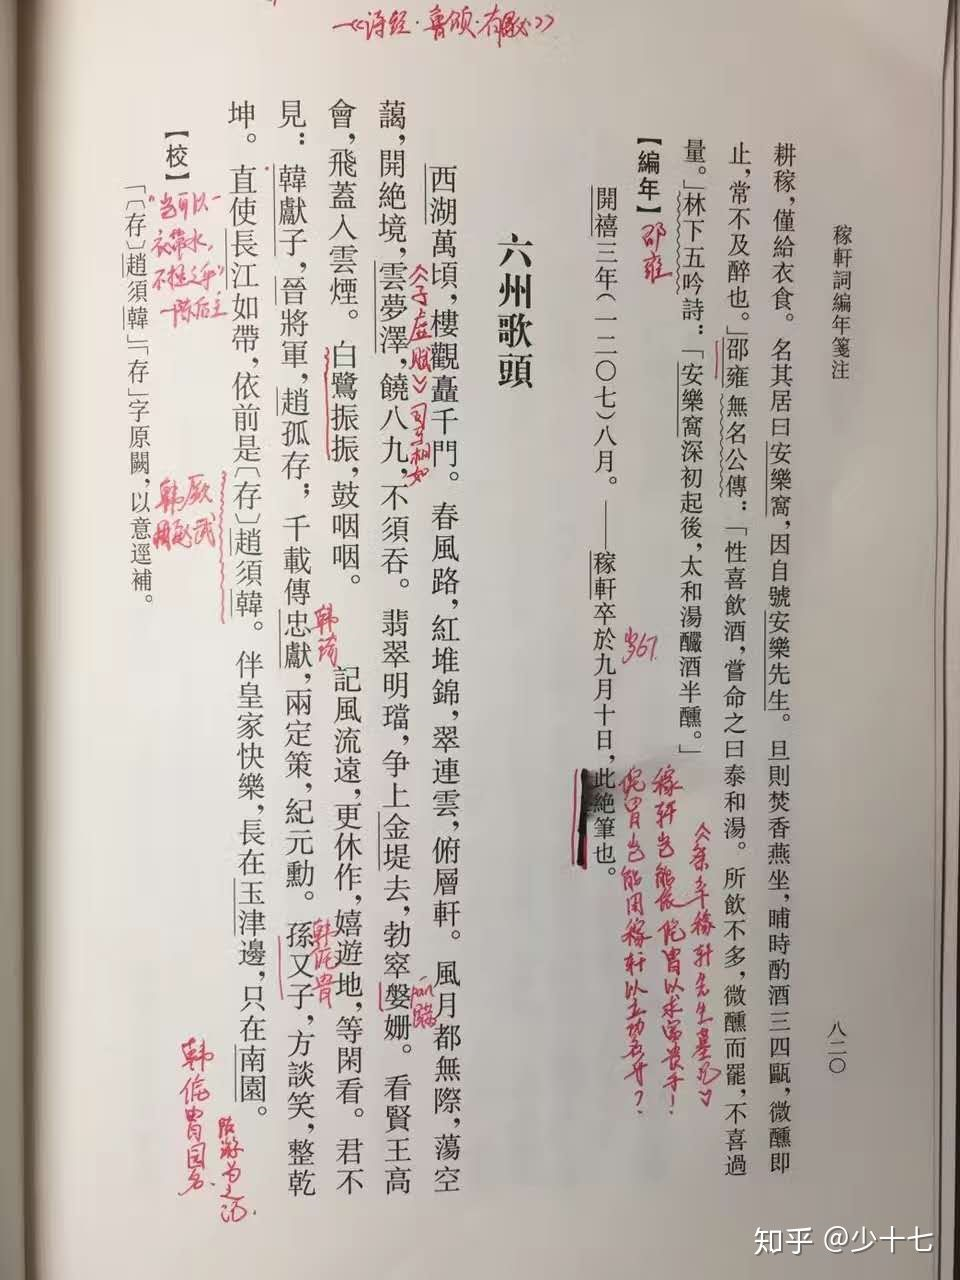 稼軒詞編年箋注
八二〇
耕稼，僅給衣食。名其居曰安樂窩，因自號安樂先生。旦則焚香燕坐，晡時酌酒三四甌，微醺即
止，常不及醉也。」邵雍無名公傳：「性喜飲酒，嘗命之曰泰和湯。所飲不多，微醺而罷，不喜過
量。」林下五吟詩：「安樂窩深初起後，太和湯釅酒半醺。」
【編年】
邵雍
開禧三年（一二〇七）八月。——稼軒卒於九月十日，此絕筆也。
岁67
《祭辛稼轩先生墓记》
稼轩岂能依侂胄以求富贵乎！
侂胄岂能用稼轩以立功名者？
六州歌頭
西湖萬頃，樓觀矗千門。春風路，紅堆錦，翠連雲，俯層軒。風月都無際，蕩空
藹，開絕境，雲夢澤，饒八九，不須吞。翡翠明璫，争上金堤去，勃窣媻姍。看賢王高
《子虚赋》司马相如
蹒跚
會，飛蓋入雲煙。白鷺振振，鼓咽咽。　記風流遠，更休作，嬉遊地，等閑看。君不
——《诗经·鲁颂·有駜》
見：韓獻子，晉將軍，趙孤存；千載傳忠獻，兩定策，紀元勳。孫又子，方談笑，整乾
韩琦
韩侂胄
坤。直使長江如帶，依前是〔存〕趙須韓。伴皇家快樂，長在玉津邊，只在南園。
韩厥
韩侂胄园名
陆游为之记.
【校】
“岂可以一
衣带水，
不拯之乎”
—陈后主
「〔存〕趙須韓」「存」字原闕，以意逕補。
知乎 @少十七